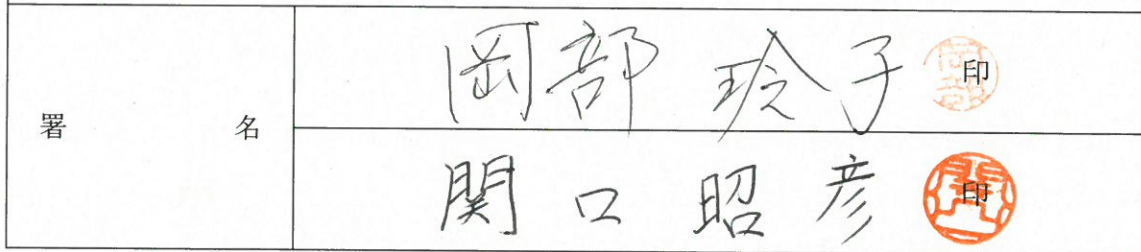 署名
岡部 玲子 印
関口 昭彦 印